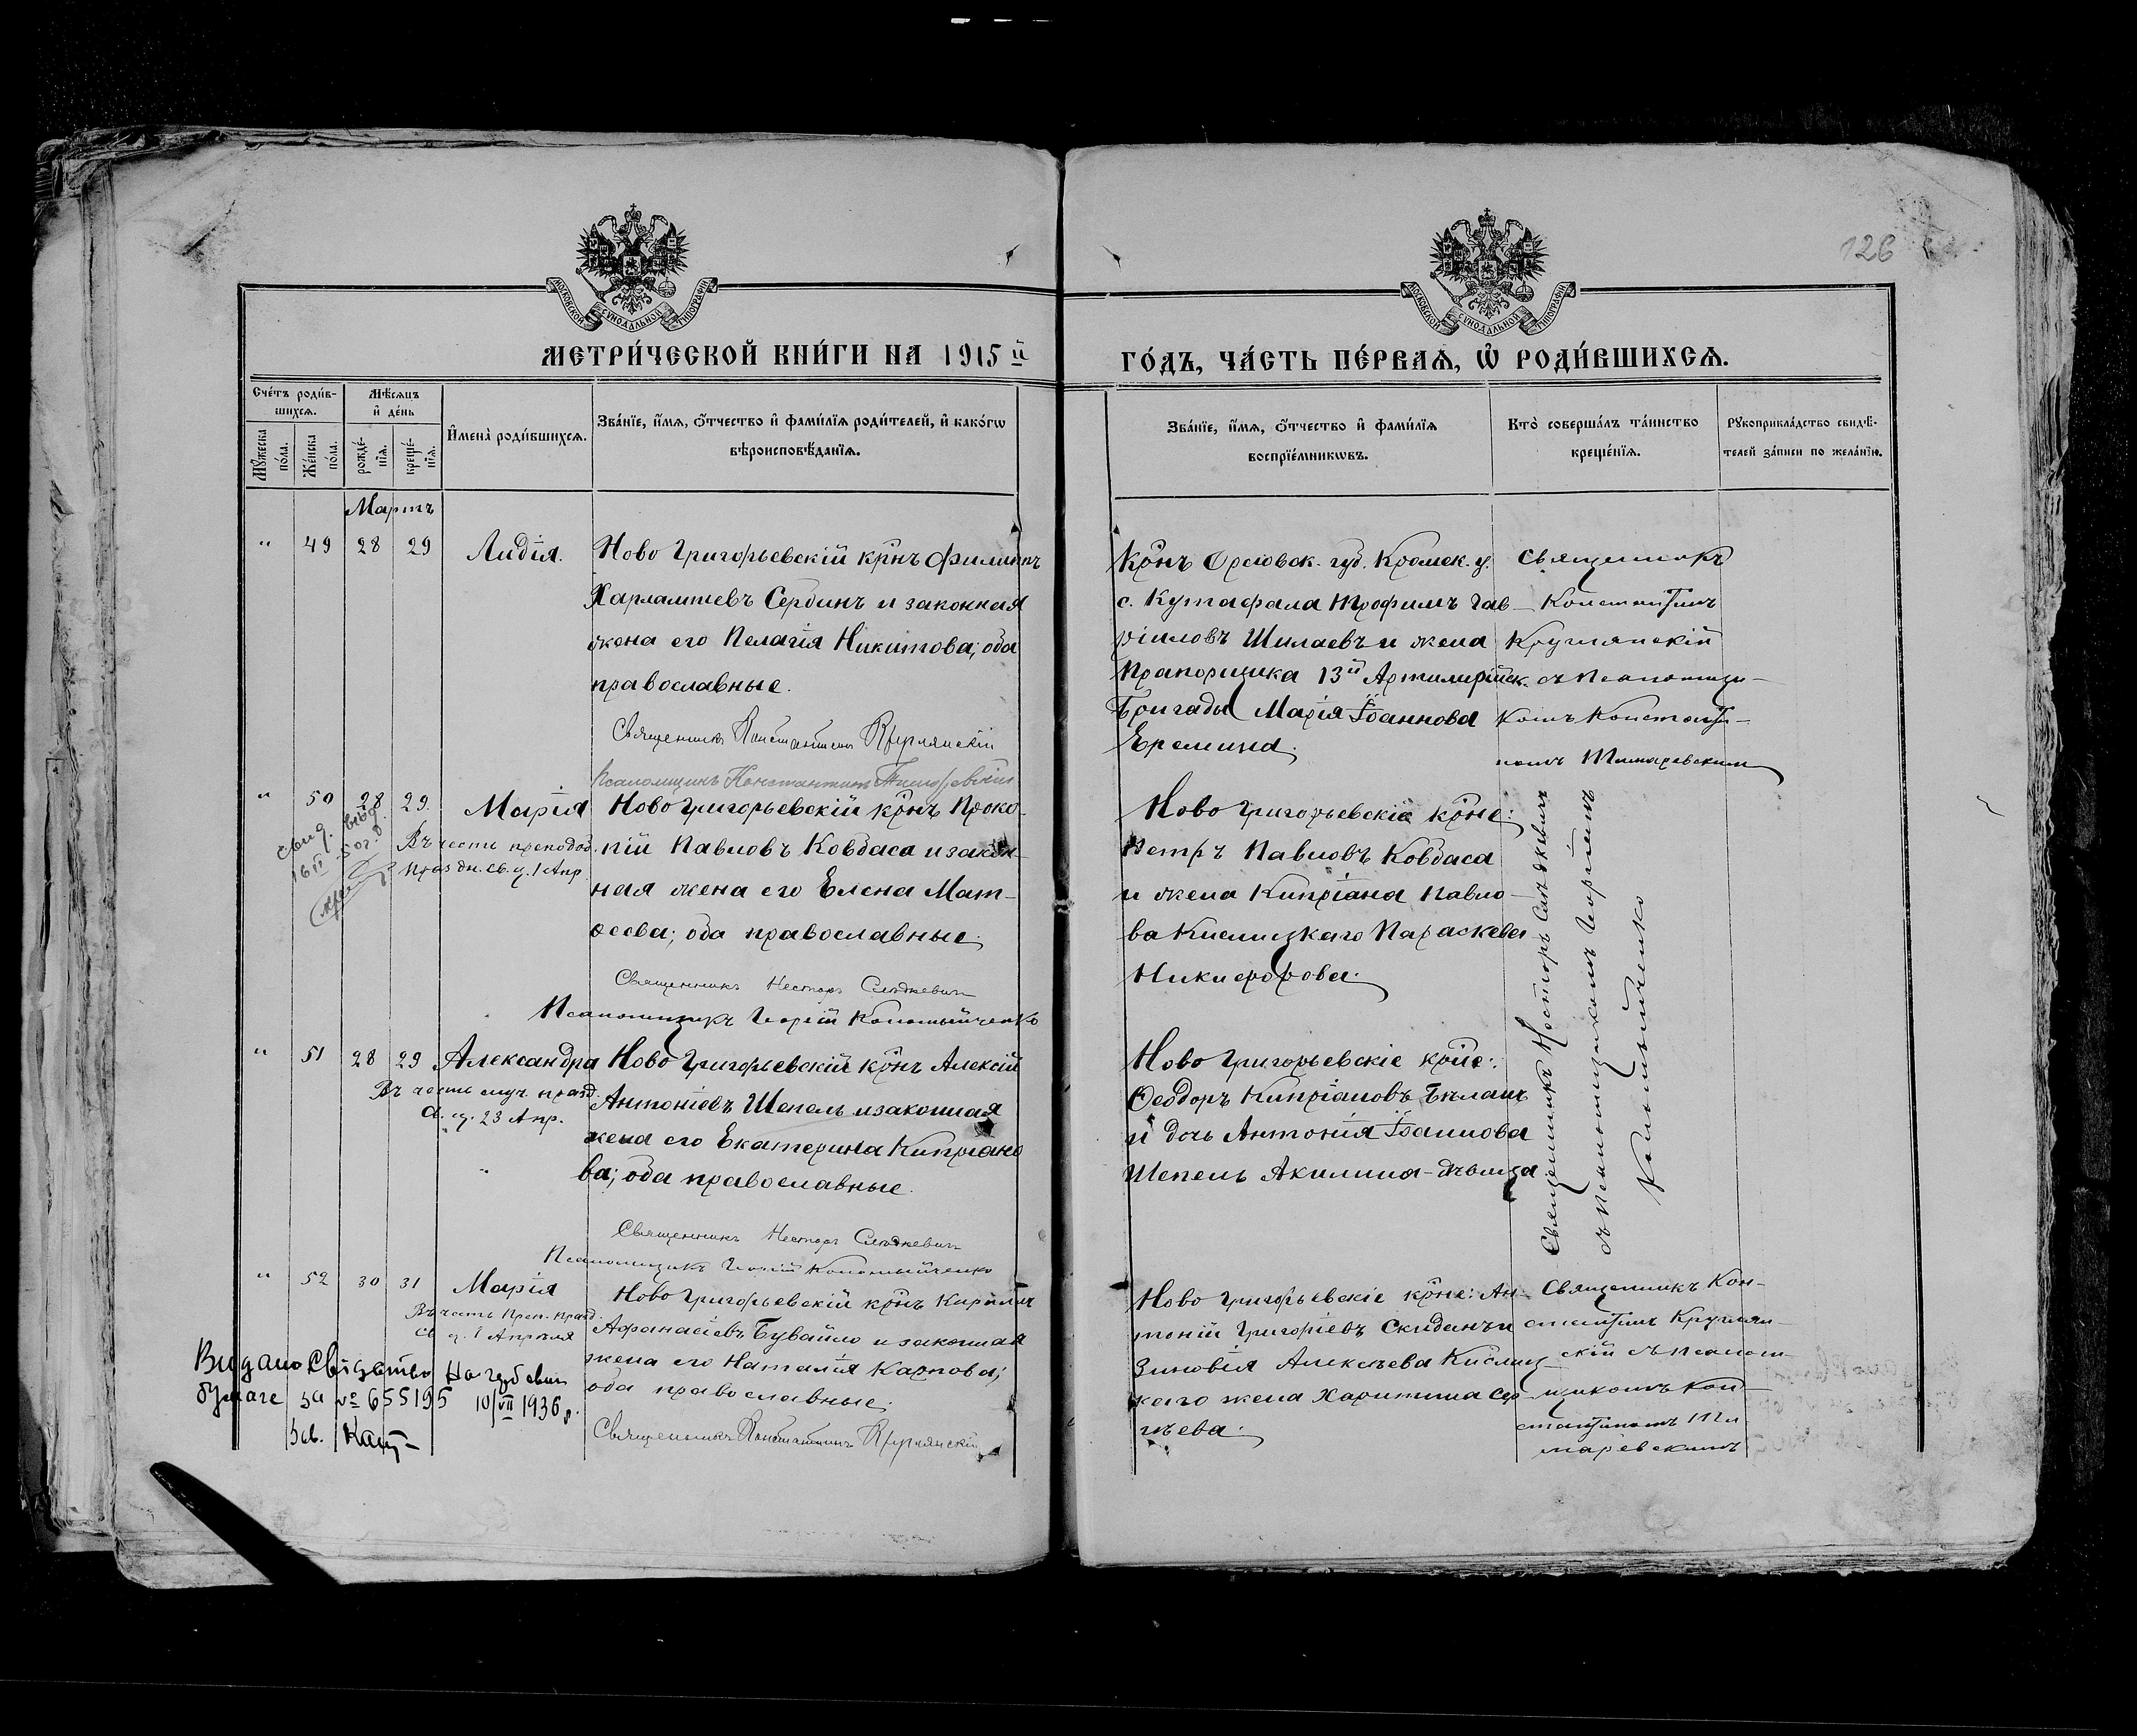 126
МОСКОВСКОЙ СѴНОДАЛЬНОЙ ТИПОГРАФІИ
МОСКОВСКОЙ СѴНОДАЛЬНОЙ ТИПОГРАФІИ
МЕТРИ́ЧЕСКОЙ КНИ́ГИ НА 1915 й
ГО́ДЪ, ЧА́СТЬ ПЕ́РВАѦ, Ѡ҆ РОДИ́ВШИХСѦ.
Сче́тъ роди́в-
шихсѧ.
Мѣ́сѧцъ
и҆ де́нь
Мꙋ́жеска
по́ла.
Же́нска
по́ла.
рожде́-
нїѧ.
креще́-
нїѧ.
И҆мена̀ роди́вшихсѧ.
Зва́нїе, и҆́мѧ, ѻ҆́тчество и҆ фами́лїѧ роди́телей, и҆ како́гѡ
вѣроисповѣ́данїѧ.
Зва́нїе, и҆́мѧ, ѻ҆́тчество и҆ фами́лїѧ
воспрїе́мникѡвъ.
Кто̀ соверша́лъ та́инство
креще́нїѧ.
Рꙋкоприкла́дство свидѣ́-
телей за́писи по жела́нїю.
Мартъ
" 49 28 29 Лидія.
Ново Григорьевскій крнъ Филиппъ
Харлампіевъ Сербинъ и законная
жена его Пелагія Никитова; оба
православные.
Священникъ Константинъ Круглянскій
Псаломщикъ Константинъ
Крнъ Орловск. губ. Кромск. у.
с. Кутафала Трофимъ Гав-
ріиловъ Шилаевъ и жена
Прапорщика 13й Артиллерійск.
Бригады Марія Іоаннова
Еремина.
Священникъ
Константинъ
Круглянскій
съ Псаломщи-
комъ Констант-
" 50 28 29. Марія
Въ честь преподоб.
праздн. св. ц. 1 Апр.
Свид. выд.
16 II
Ново Григорьевскій крнъ Проко-
пій Павловъ Ковбаса и закон-
ная жена его Елена Мат-
ѳеева; оба православные.
Священникъ Несторъ
Псаломщикъ Георгій Коломыйченко
Ново Григорьевскіе крне:
Петръ Павловъ Ковбаса
и жена Кипріана Павло-
ва Кислицкаго Параскева
Никифорова.
Священникъ Несторъ
съ Псаломщикомъ Георгіемъ
Коломыйченко
" 51 28 29 Александра
Въ честь муч. празд.
ц. 23 Апр.
Ново Григорьевскій крнъ Алексій
Антоніевъ Шепель и законная
жена его Екатерина Кипріано
ва; оба православные.
Священникъ Несторъ
Псаломщикъ Георгій Коломыйченко
Ново Григорьевскіе крне:
Ѳеодоръ Кипріановъ Бѣлашъ
и дочь Антонія Іоаннова
Шепель Акилина - дѣвица
" 52 30 31 Марія
Въ честь Преп. празд.
св ц. 1 Апрѣля
Ново Григорьевскій крнъ Кириллъ
Афанасіевъ Бувайло и законная
жена его Наталія Карпова;
оба православные.
Священникъ Константинъ Круглянскій
Ново Григорьевскіе крне: Ан-
тоній Григоріевъ Скиданъ и
Зиновія Алексѣева Кислиц-
каго жена Харитина Сер-
гѣева.
Священникъ Кон-
стантинъ Круглян-
скій съ Псалом-
щикомъ Кон-
стантиномъ
Видано
бумаге за № 655195 10/VII 1936 р.
Зав.